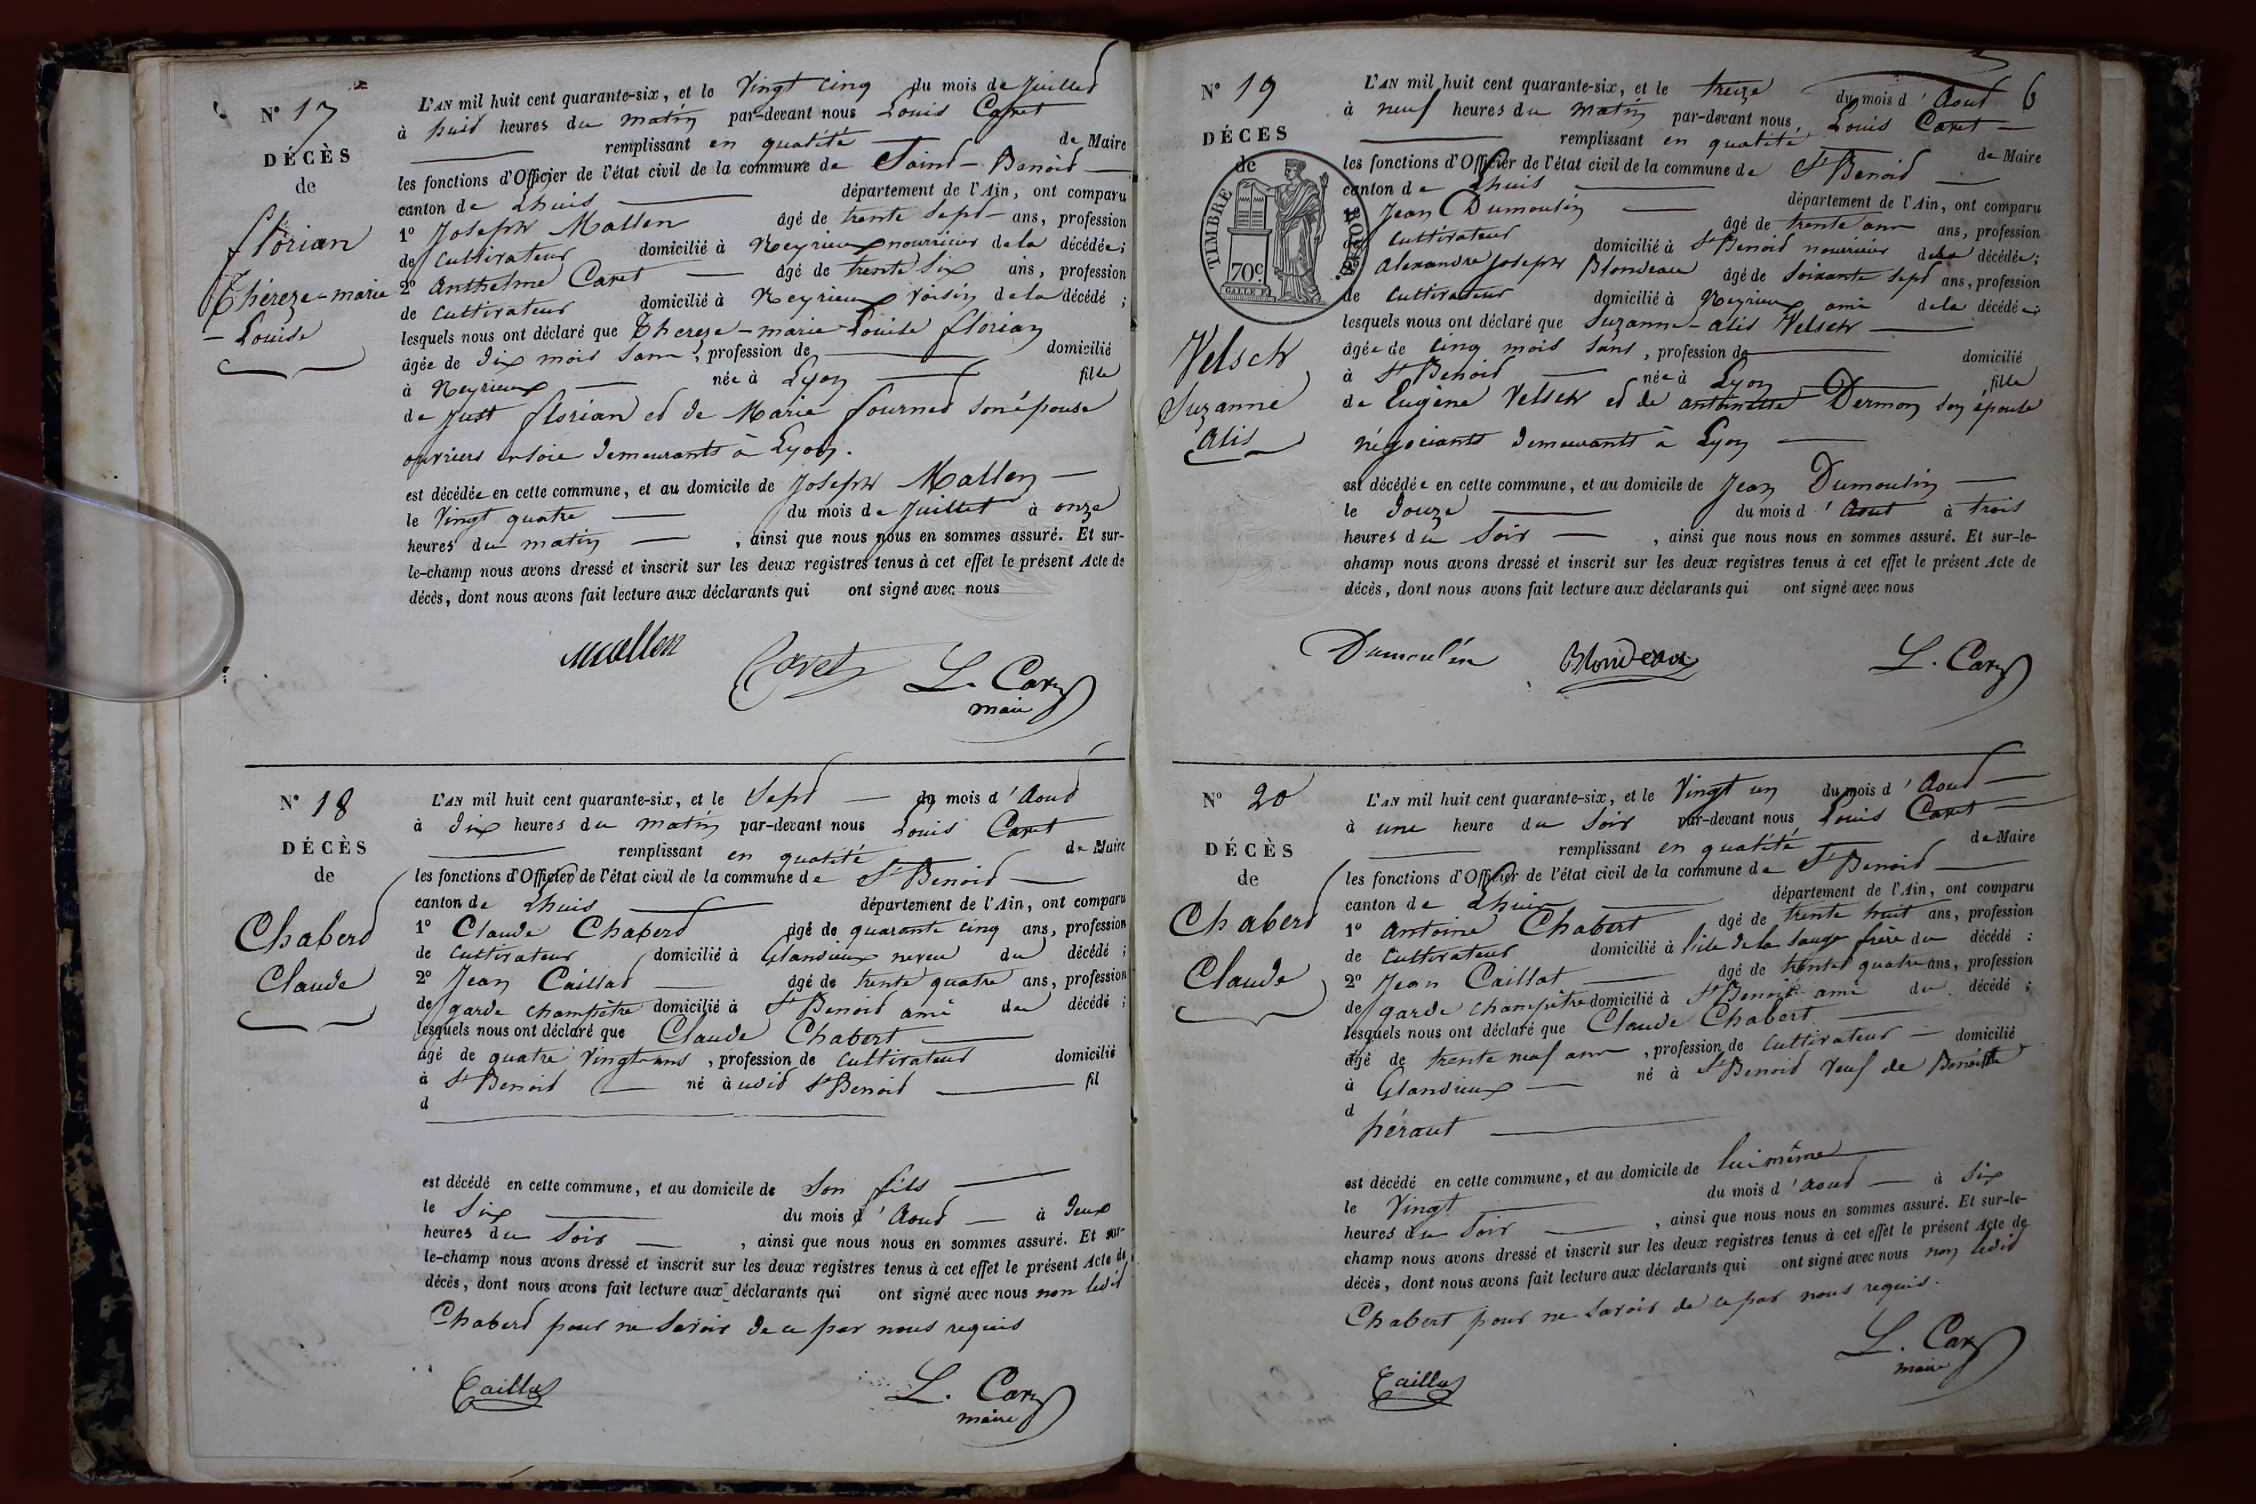 N° 17
DÉCÈS
de
florian
Théreze-marie
- Louise
L'AN mil huit cent quarante-six, et le Vingt cinq du mois de Juillet
à huit heures du matin par-devant nous Louis Caret
remplissant en qualité de Maire
les fonctions d'Officier de l'état civil de la commune de Saint-Benoit
canton de Lhuis département de l'Ain, ont comparu
1° Joseph Mallen âgé de trente Sept ans, profession
de cultivateur domicilié à Neyrieux nourricier de la décédée;
2° Anthelme Caret âgé de trente Six ans, profession
de cultivateur domicilié à Neyrieux voisin de la décédé ;
lesquels nous ont déclaré que Thereze-marie Louise florian
âgée de dix mois Sans, profession de domicilié
à Neyrieux née à Lyon fille
de Just florian et de Marie fournet son épouse
ouvriers en soie demeurants à Lyon.
est décédée en cette commune, et au domicile de Joseph Mallen
le Vingt quatre du mois de Juillet à onze
heures du matin , ainsi que nous nous en sommes assuré. Et sur-
le-champ nous avons dressé et inscrit sur les deux registres tenus à cet effet le présent Acte de
décès, dont nous avons fait lecture aux déclarants qui ont signé avec nous
Mallen Caret L. Caret
maire
N° 18
DÉCÈS
de
Chabert
Claude
L'AN mil huit cent quarante-six, et le Sept du mois d'Aout
à dix heures du matin par-devant nous Louis Caret
remplissant en qualité de Maire
les fonctions d'Officier de l'état civil de la commune de St Benoit
canton de Lhuis département de l'Ain, ont comparu
1° Claude Chabert âgé de quarante cinq ans, profession
de cultivateur domicilié à Glandieux neveu du décédé ;
2° Jean Caillat âgé de trente quatre ans, profession
de garde champêtre domicilié à St Benoit ami du décédé ;
lesquels nous ont déclaré que Claude Chabert
âgé de quatre Vingt ans , profession de cultivateur domicilié
à St Benoit né à udit St Benoit fil
d
est décédé en cette commune, et au domicile de Son fils
le Six du mois d'Aout à deux
heures du Soir , ainsi que nous nous en sommes assuré. Et sur-
le-champ nous avons dressé et inscrit sur les deux registres tenus à cet effet le présent Acte de
décès, dont nous avons fait lecture aux déclarants qui ont signé avec nous non ledit
Chabert pour ne Savoir de ce par nous requis
Caillat L. Caret
maire
6
N° 19
DÉCES
de
TIMBRE ROYAL
70c
Velsch
Suzanne
alis
L'AN mil huit cent quarante-six, et le treize du mois d'Aout
à neuf heures du matin par-devant nous Louis Caret
remplissant en qualité de Maire
les fonctions d'Officier de l'état civil de la commune de St Benoit
canton de Lhuis département de l'Ain, ont comparu
1° Jean Dumoulin âgé de trente ans ans, profession
de cultivateur domicilié à St Benoit nourricier de la décédée;
2° alexandre Joseph Blondeau âgé de Soixante Sept ans, profession
de cultivateur domicilié à Neyrieux ami de la décédée;
lesquels nous ont déclaré que Suzanne-alis Velsch
âgée de cinq mois Sans , profession de domicilié
à St Benoit née à Lyon fille
de Eugène Velsch et de antoinette Dermon Son épouse
négociants demeurants à Lyon
est décédée en cette commune, et au domicile de Jean Dumoulin
le douze du mois d'Aout à trois
heures du Soir , ainsi que nous nous en sommes assuré. Et sur-le-
champ nous avons dressé et inscrit sur les deux registres tenus à cet effet le présent Acte de
décès, dont nous avons fait lecture aux déclarants qui ont signé avec nous
Dumoulin Blondeau L. Caret
N° 20
DÉCÈS
de
Chabert
Claude
L'AN mil huit cent quarante-six, et le Vingt un du mois d'Aout
à une heure du Soir par-devant nous Louis Caret
remplissant en qualité de Maire
les fonctions d'Officier de l'état civil de la commune de St Benoit
canton de Lhuis département de l'Ain, ont comparu
1° Antoine Chabert âgé de trente huit ans, profession
de cultivateur domicilié à l'ile de la Sauge frère du décédé :
2° Jean Caillat âgé de trente quatre ans, profession
de garde champêtre domicilié à St Benoit ami du décédé ;
lesquels nous ont déclaré que Claude Chabert
âgé de trente neuf ans , profession de cultivateur domicilié
à Glandieux né à St Benoit Veuf de Benoitte
d
héraut
est décédé en cette commune, et au domicile de lui même
le Vingt du mois d'Aout à Six
heures du Soir , ainsi que nous nous en sommes assuré. Et sur-le-
champ nous avons dressé et inscrit sur les deux registres tenus à cet effet le présent Acte de
décès, dont nous avons fait lecture aux déclarants qui ont signé avec nous non ledit
Chabert pour ne Savoir de ce par nous requis.
Caillat L. Caret
maire